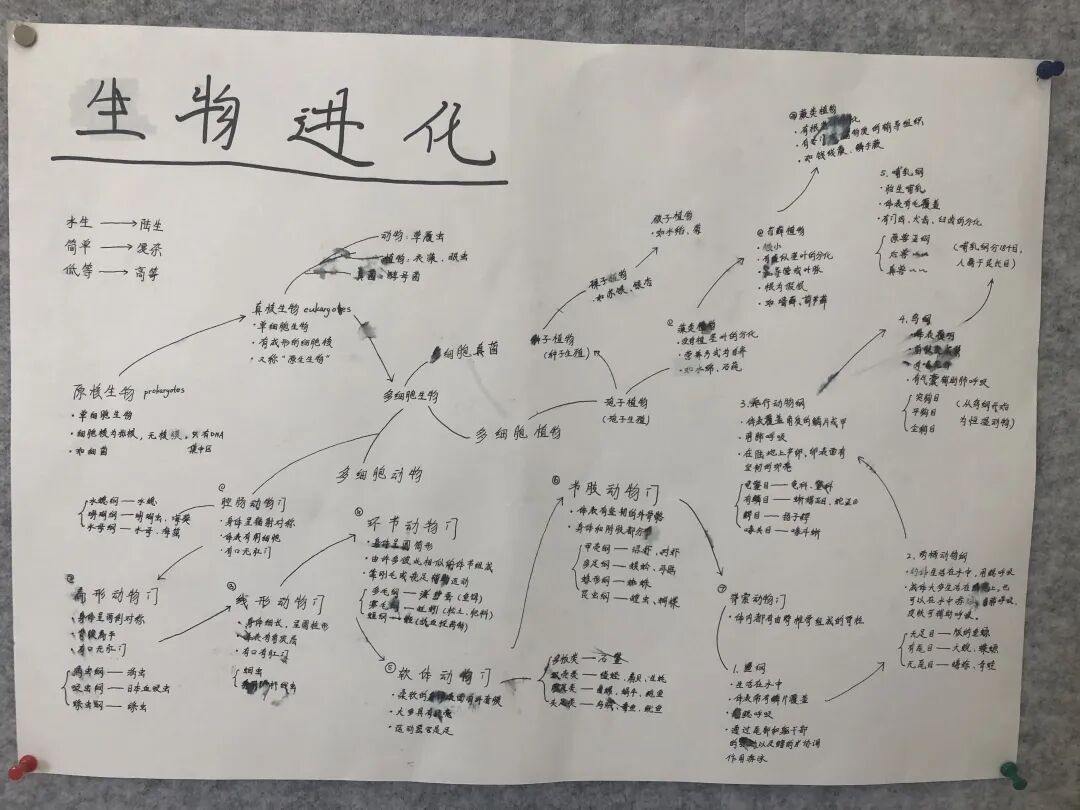 生物进化
水生 → 陆生
简单 → 复杂
低等 → 高等
原核生物 prokaryotes
·单细胞生物
·细胞核为拟核，无核膜，只有DNA
集中区
·如细菌
真核生物 eukaryotes
·单细胞生物
·有成形的细胞核
·又称“原生生物”
动物：草履虫
植物：衣藻、眼虫
真菌：酵母菌
多细胞生物
多细胞真菌
多细胞植物
多细胞动物
孢子植物
(孢子生殖)
种子植物
(种子生殖)
裸子植物
·如苏铁、银杏
被子植物
·如水稻、
藻类植物
·没有根茎叶的分化
·营养方式为自养
·如水绵、石莼
苔藓植物
·矮小
·有类似茎叶的分化
·根为假根
·如墙藓、葫芦藓
蕨类植物
·有根
·有 的输导组织
·如铁线蕨、鳞子蕨
①
腔肠动物门
·身体呈辐射对称
·体表有刺细胞
·有口无肛门
水螅纲——水螅
珊瑚纲——珊瑚虫、海葵
水母纲——水母、海蜇
②
扁形动物门
·身体呈两侧对称
·背腹扁平
·有口无肛门
涡虫纲——涡虫
吸虫纲——日本血吸虫
绦虫纲——绦虫
③
线形动物门
·身体细长，呈圆柱形
·体表有角质层
·有口有肛门
蛔虫
④
环节动物门
·身体呈圆筒形
·由许多彼此相似的体节组成
·靠刚毛或疣足辅助运动
多毛纲——沙蚕 (鱼饵)
寡毛纲——蚯蚓 (松土、肥料)
蛭纲——蛭
⑤
软体动物门
·柔软的身体表面有外套膜
·大多具有贝壳
·运动器官是足
多板类——石鳖
双壳类——缢蛏、扇贝、
腹足类——蜗牛、鲍鱼
头足类——乌贼、章鱼、鱿鱼
⑥
节肢动物门
·体表有坚韧的外骨骼
·身体和附肢都分节
甲壳纲——沼虾、对虾
多足纲——蜈蚣、马陆
蛛形纲——蜘蛛
昆虫纲——蝗虫、蝴蝶
⑦
脊索动物门
·体内都有由脊椎骨组成的脊柱
1. 鱼纲
·生活在水中
·体表常有鳞片覆盖
·用鳃呼吸
·通过尾部和躯干部
的摆动以及鳍的协调
作用游泳
2. 两栖动物纲
·幼体生活在水中，用鳃呼吸
·成体大多生活在陆地上，也
可以在水中游泳，用肺呼吸，
皮肤可辅助呼吸。
无足目——版纳鱼螈
有尾目——大鲵、蝾螈
无尾目——蟾蜍、青蛙
3. 爬行动物纲
·体表覆盖角质的鳞片或甲
·用肺呼吸
·在陆地上产卵，卵表面有
坚韧的卵壳
龟鳖目——龟科、鳖科
有鳞目——蜥蜴亚目、蛇亚目
鳄目——扬子鳄
喙头目——喙头蜥
4. 鸟纲
·体表覆羽
·有气囊辅助肺呼吸
突胸目
平胸目
企鹅目
(从鸟纲开始
为恒温动物)
5. 哺乳纲
·胎生哺乳
·体表有毛覆盖
·有门齿、犬齿、臼齿的分化
原兽亚纲
后兽〃〃
真兽〃〃
(哺乳纲分18个目，
人属于灵长目)